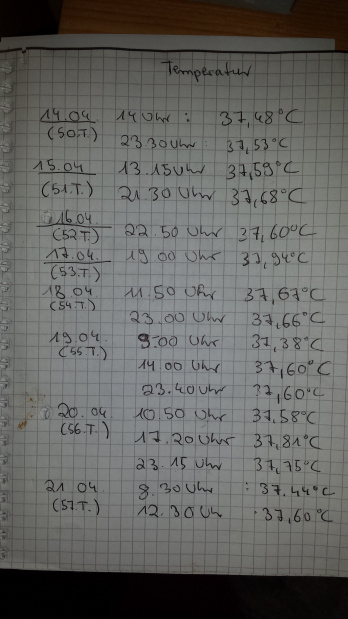 Temperatur
14.04 14 Uhr : 37,48°C
(50.T.) 23 30 Uhr 37,53°C
15.04 13.15 Uhr 37,59°C
(51.T.) 21.30 Uhr 37,68°C
16.04
(52.T.) 22.50 Uhr 37,60°C
17.04. 19 00 Uhr 37,94°C
(53.T.)
18.04 11.50 Uhr 37,67°C
(54.T.) 23.00 Uhr 37,66°C
19.04. 9.00 Uhr 37,38°C
(55.T.) 14.00 Uhr 37,60°C
23.40 Uhr 37,60°C
20.04. 10.50 Uhr 37,58°C
(56.T.) 17.20 Uhr 37,81°C
23.15 Uhr 37,75°C
21.04. 8.30 Uhr : 37.44°C
(57.T.) 12.30 Uhr . 37,60°C